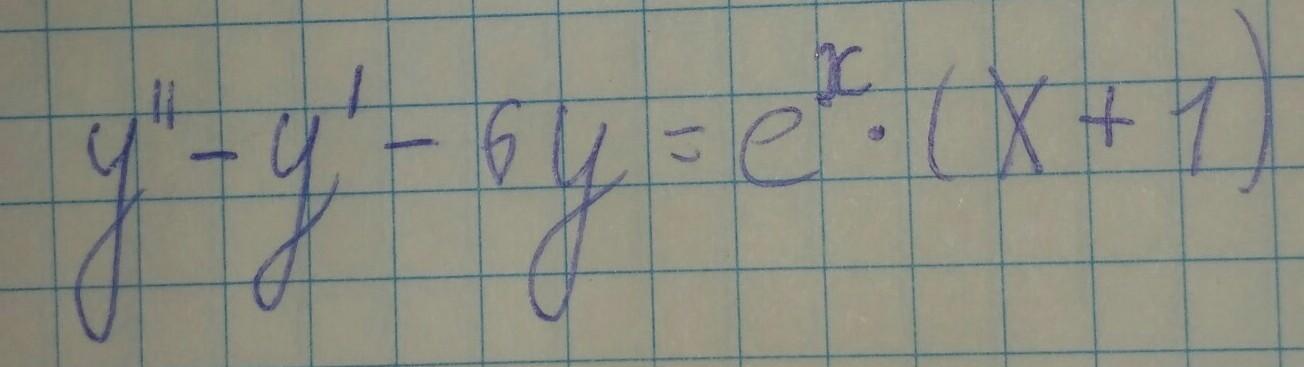 y'' - y' - 6y = e^x · (x + 1)